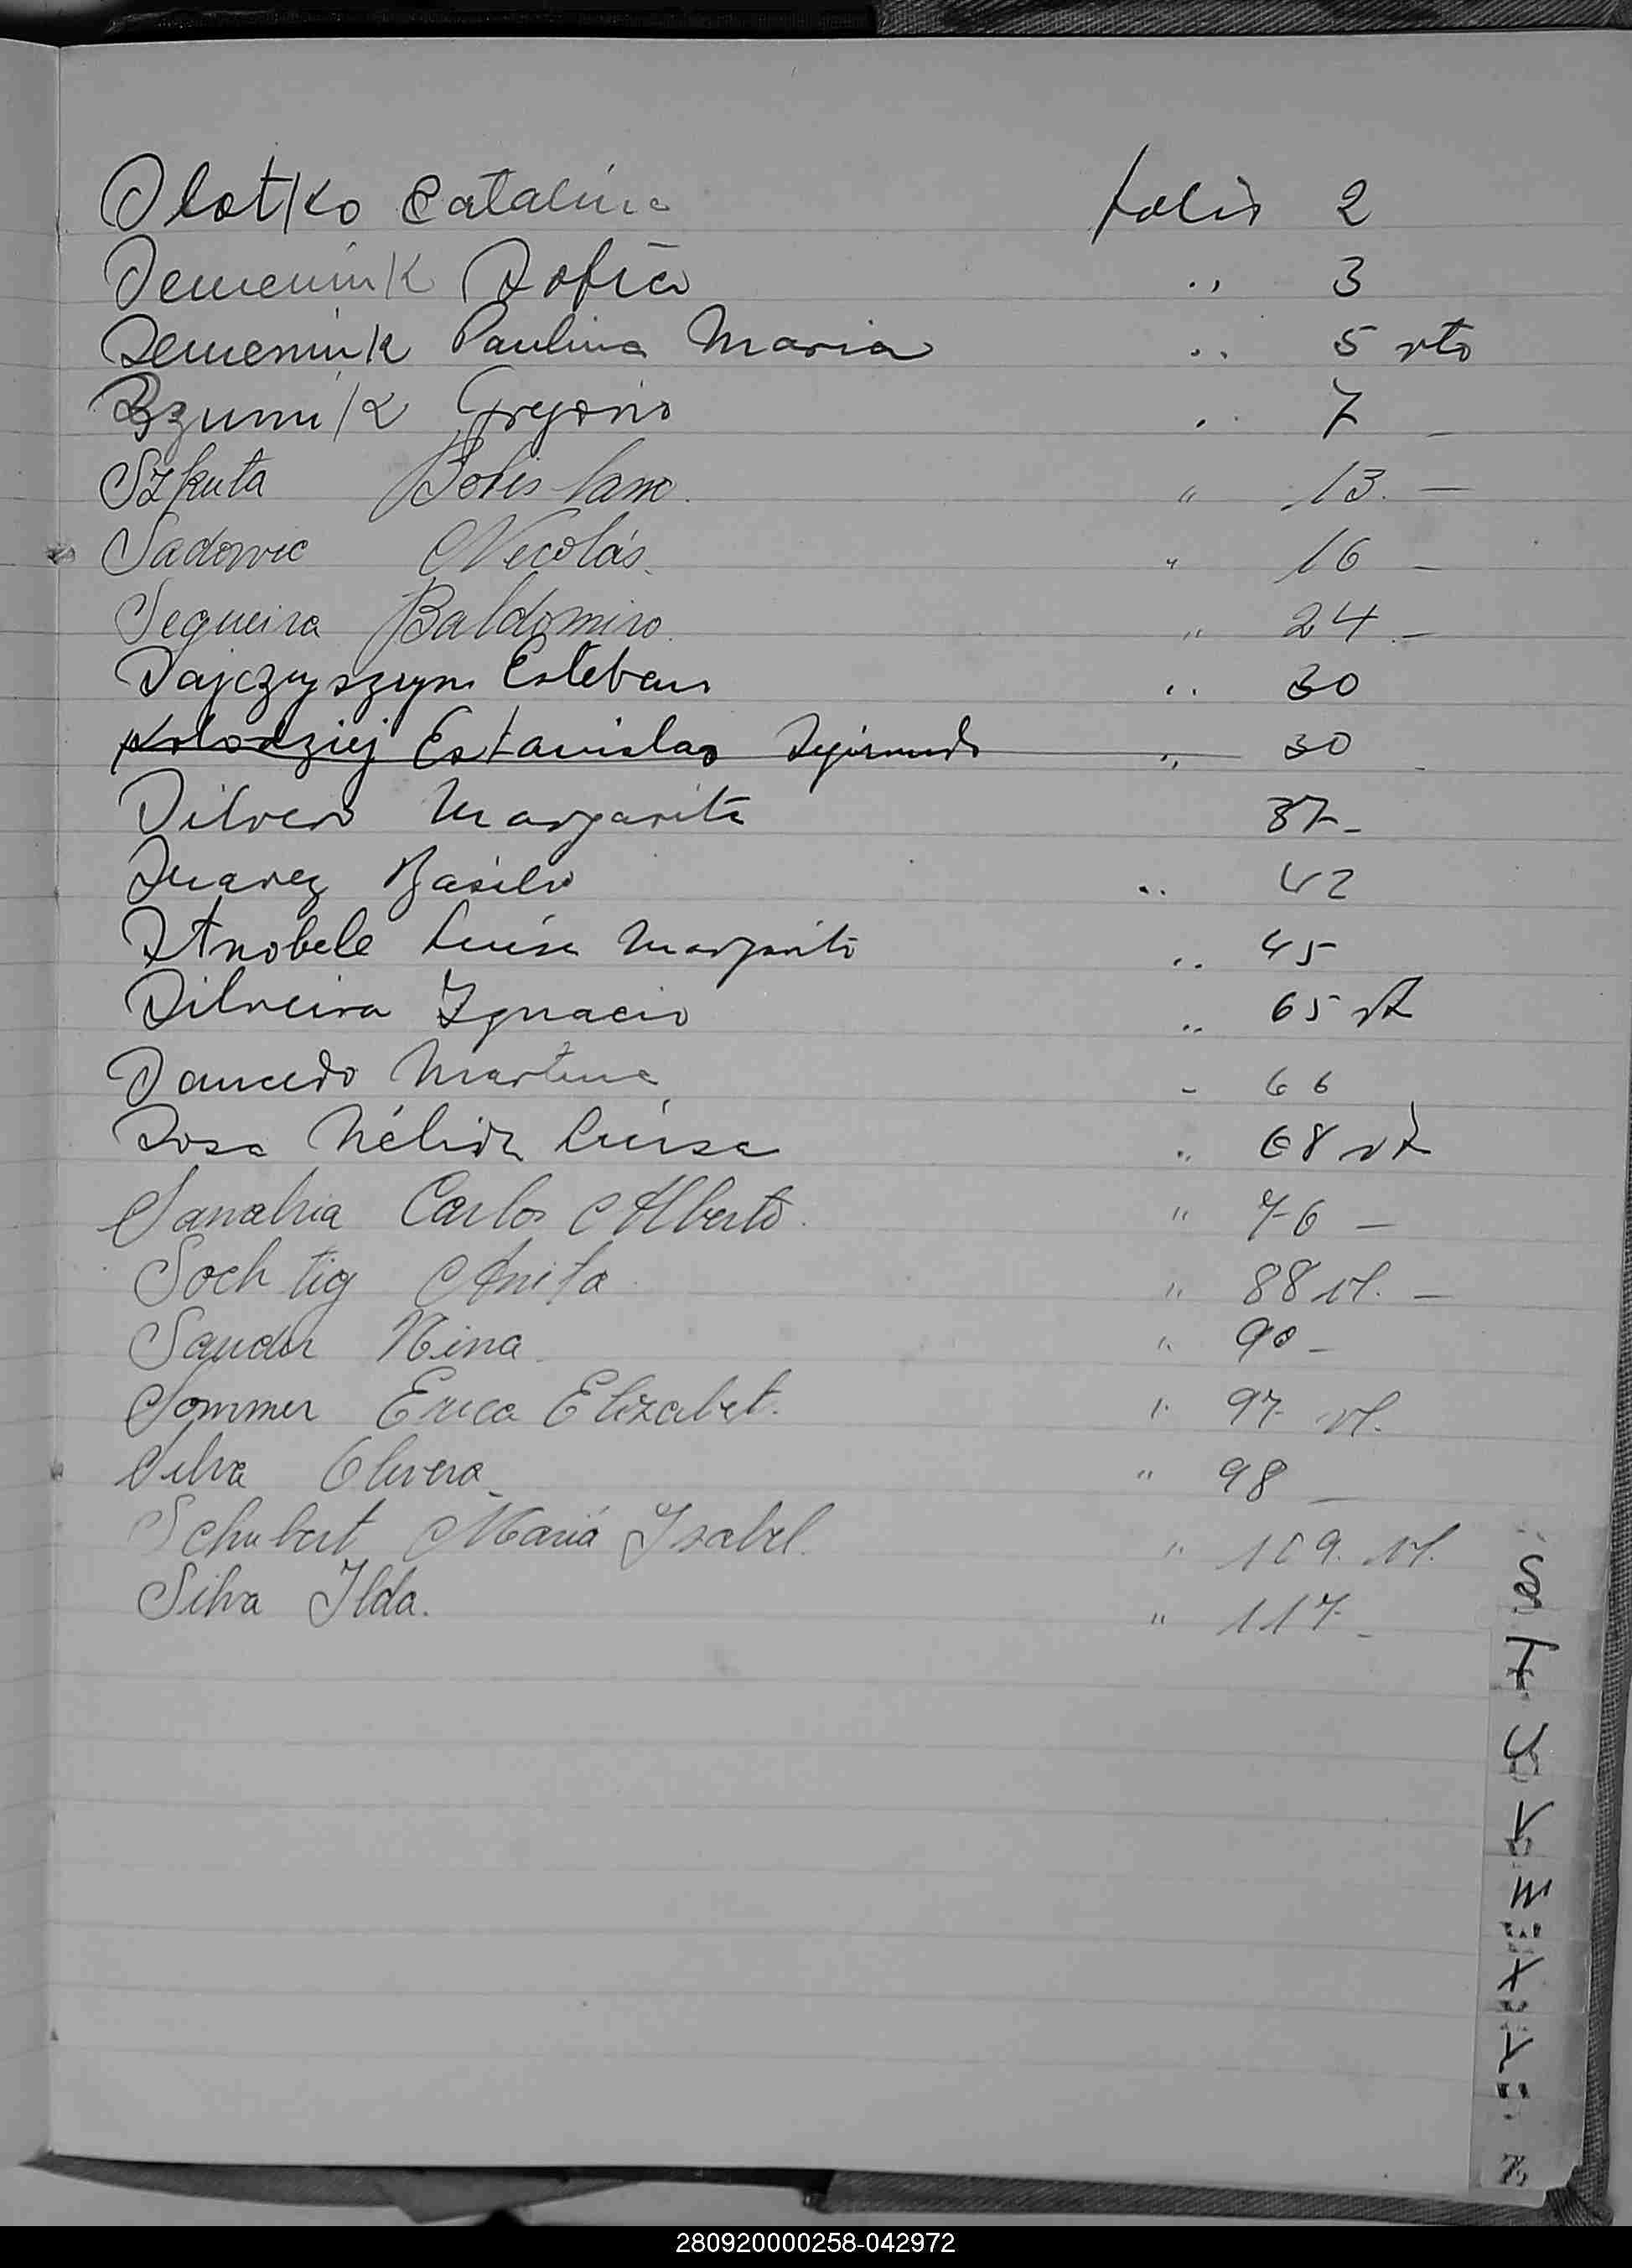 Slotko Catalina folio 2
Semeniuk Sofia .. 3
Semeniuk Paulina Maria .. 5 vto
Gregorio .. 7 _
Szkuta Boleslaw. " 13. —
Sadovic Nicolás. " 16 —
Sequeira Baldomiro. " 24 —
Sajczyszyn Esteban .. 30
Kolodziej Estanislao Segismundo .. 30
Silvero Margarita 37-
Suarez Basilio .. 42
Stnobele Luisa Margarita .. 45
Silveira Ignacio .. 65 vt
Saucedo Martina - 66
Sosa Nélida Luisa .. 68 vt
Sanabria Carlos Alberto. " 76 —
Sochtig Anita " 88 vt. —
Sander Nina " 90 -
Sommer Erica Elizabet. " 97 vt.
Silva Olivera " 98 —
Schubert Maria Isabel. " 109. vt.
Silva Ilda. " 117 -
S
T
U
V
W
X
Y
Z
280920000258-042972